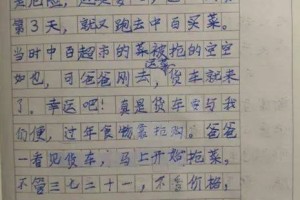 是危险，
第3天，就又跑去中百买菜。
当时中百超市的菜被抢的空空
这菜
如也，可爸爸刚去，货车就来
了。幸运吧！真是货车空与我
们便，过年食物靠抢购。爸爸
一看见货车，马上开始抢菜。
不管三七二十一，不看价格，